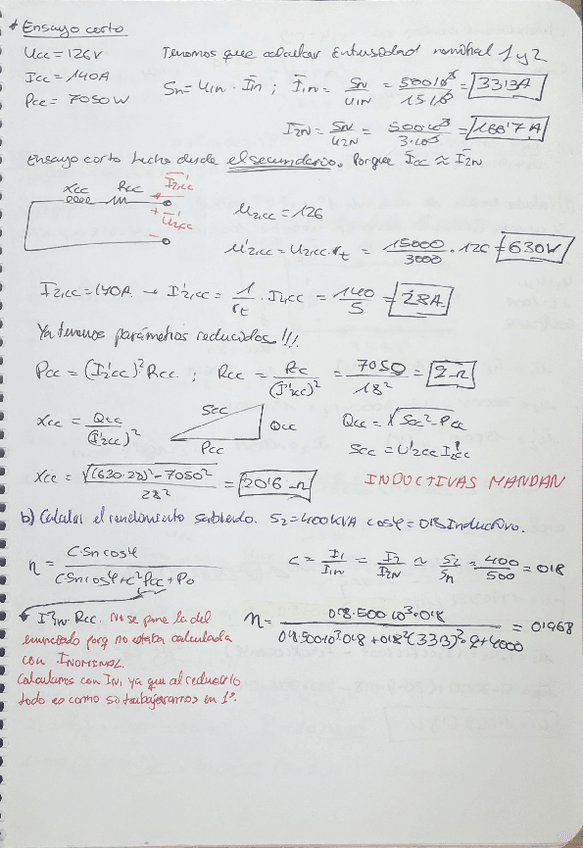 * Ensayo corto
Ucc = 126V
Icc = 140A
Pcc = 7050W
Tenemos que calcular Intensidad nominal 1 y 2
Sn = U1N · I1N ; I1N = SN/U1N = 500·10³/15·10³ = 33'3A
I2N = SN/U2N = 500·10³/3·10³ = 166'7A
Ensayo corto hecho desde el secundario. Porque Icc ≈ I2N
Xcc Rcc I'2cc
+ U'2cc -
U2cc = 126
U'2cc = U2cc·rt = 15000/3000 · 126 = 630V
I2cc = 140A → I'2cc = 1/rt · I2cc = 140/5 = 28A
Ya tenemos parámetros reducidos!!!
Pcc = (I'2cc)² Rcc ; Rcc = Pc/(I'2cc)² = 7050/18² = 9Ω
Xcc = Qcc/(I'2cc)²
Scc Qcc Pcc
Qcc = √Scc² - Pcc
Scc = U'2cc I'2cc
Xcc = √(630·28)² - 7050²/28² = 20'6 Ω
INDUCTIVAS MANDAN
b) Calcular el rendimiento sabiendo. S2 = 400KVA cosφ = 0'8 Inductivo.
η = C·Sn cosφ/C·Sn cosφ + C²Pcc + Po
C = I1/I1N = I2/I2N ≈ S2/Sn = 400/500 = 0'8
I²1N · Rcc. No se pone la del
enunciado porq no estaba calculada
con INOMINAL
Calculamos con IN1 ya que al reducirlo
todo es como si trabajaramos en 1º.
η = 0'8·500·10³·0'8/0'8·500·10³·0'8 + 0'8²(33'3)²·9 + 4000 = 0'968